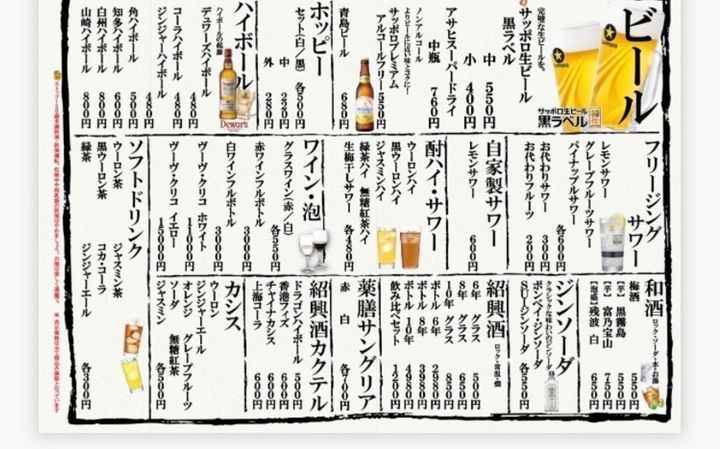 ビール
完璧な生ビールを。
サッポロ生ビール
黒ラベル
中 525円
小 400円
アサヒスーパードライ
中瓶 760円
ノンアルコール
サッポロプレミアム
アルコールフリー 525円
青島ビール 680円
サッポロ生ビール
黒ラベル
ホッピー
セット(白/黒) 各500円
中 220円
外 280円
ハイボール
ハイボールの起源
デュワーズハイボール 480円
コーラハイボール 480円
ジンジャーハイボール 480円
角ハイボール 500円
知多ハイボール 600円
六白ハイボール 600円
白州ハイボール 800円
山崎ハイボール 800円
Dewar's
フリージングサワー
レモンサワー
グレープフルーツサワー
パイナップルサワー
各600円
お代わりサワー 300円
お代わりフルーツ 200円
自家製サワー
レモンサワー 600円
酎ハイ・サワー
ウーロンハイ
黒ウーロンハイ
ジャスミンハイ
緑茶ハイ 無糖紅茶ハイ
生梅干しサワー 各480円
ワイン・泡
グラスワイン(赤/白) 各550円
赤ワインフルボトル 3000円
白ワインフルボトル 3000円
ヴーヴ・クリコ ホワイト 11000円
ヴーヴ・クリコ イエロー 15000円
ソフトドリンク
ウーロン茶
黒ウーロン茶
緑茶
ジャスミン茶
コカ・コーラ
ジンジャーエール
各300円
和酒
ロック・ソーダ・水・お湯
梅酒 525円
【芋】黒霧島 525円
【芋】富乃宝山 750円
【泡盛】残波 白 650円
ジンソーダ
クラシックな味わいのジンソーダ
ボンベイ・ジンソーダ
SUIジンソーダ
各525円
紹興酒
ロック・常温・燗
6年 グラス 500円
8年 グラス 650円
10年 グラス 850円
ボトル 6年 2980円
ボトル 8年 3980円
ボトル 10年 4980円
飲み比べセット 1200円
薬膳サングリア
赤 白 各700円
紹興酒カクテル
ドラゴンハイボール 500円
香港フィズ 600円
チャイナカシス 600円
上海コーラ 600円
カシス
ウーロン
ジンジャーエール
オレンジ グレープフルーツ
ソーダ 無糖紅茶
ジャスミン 各500円